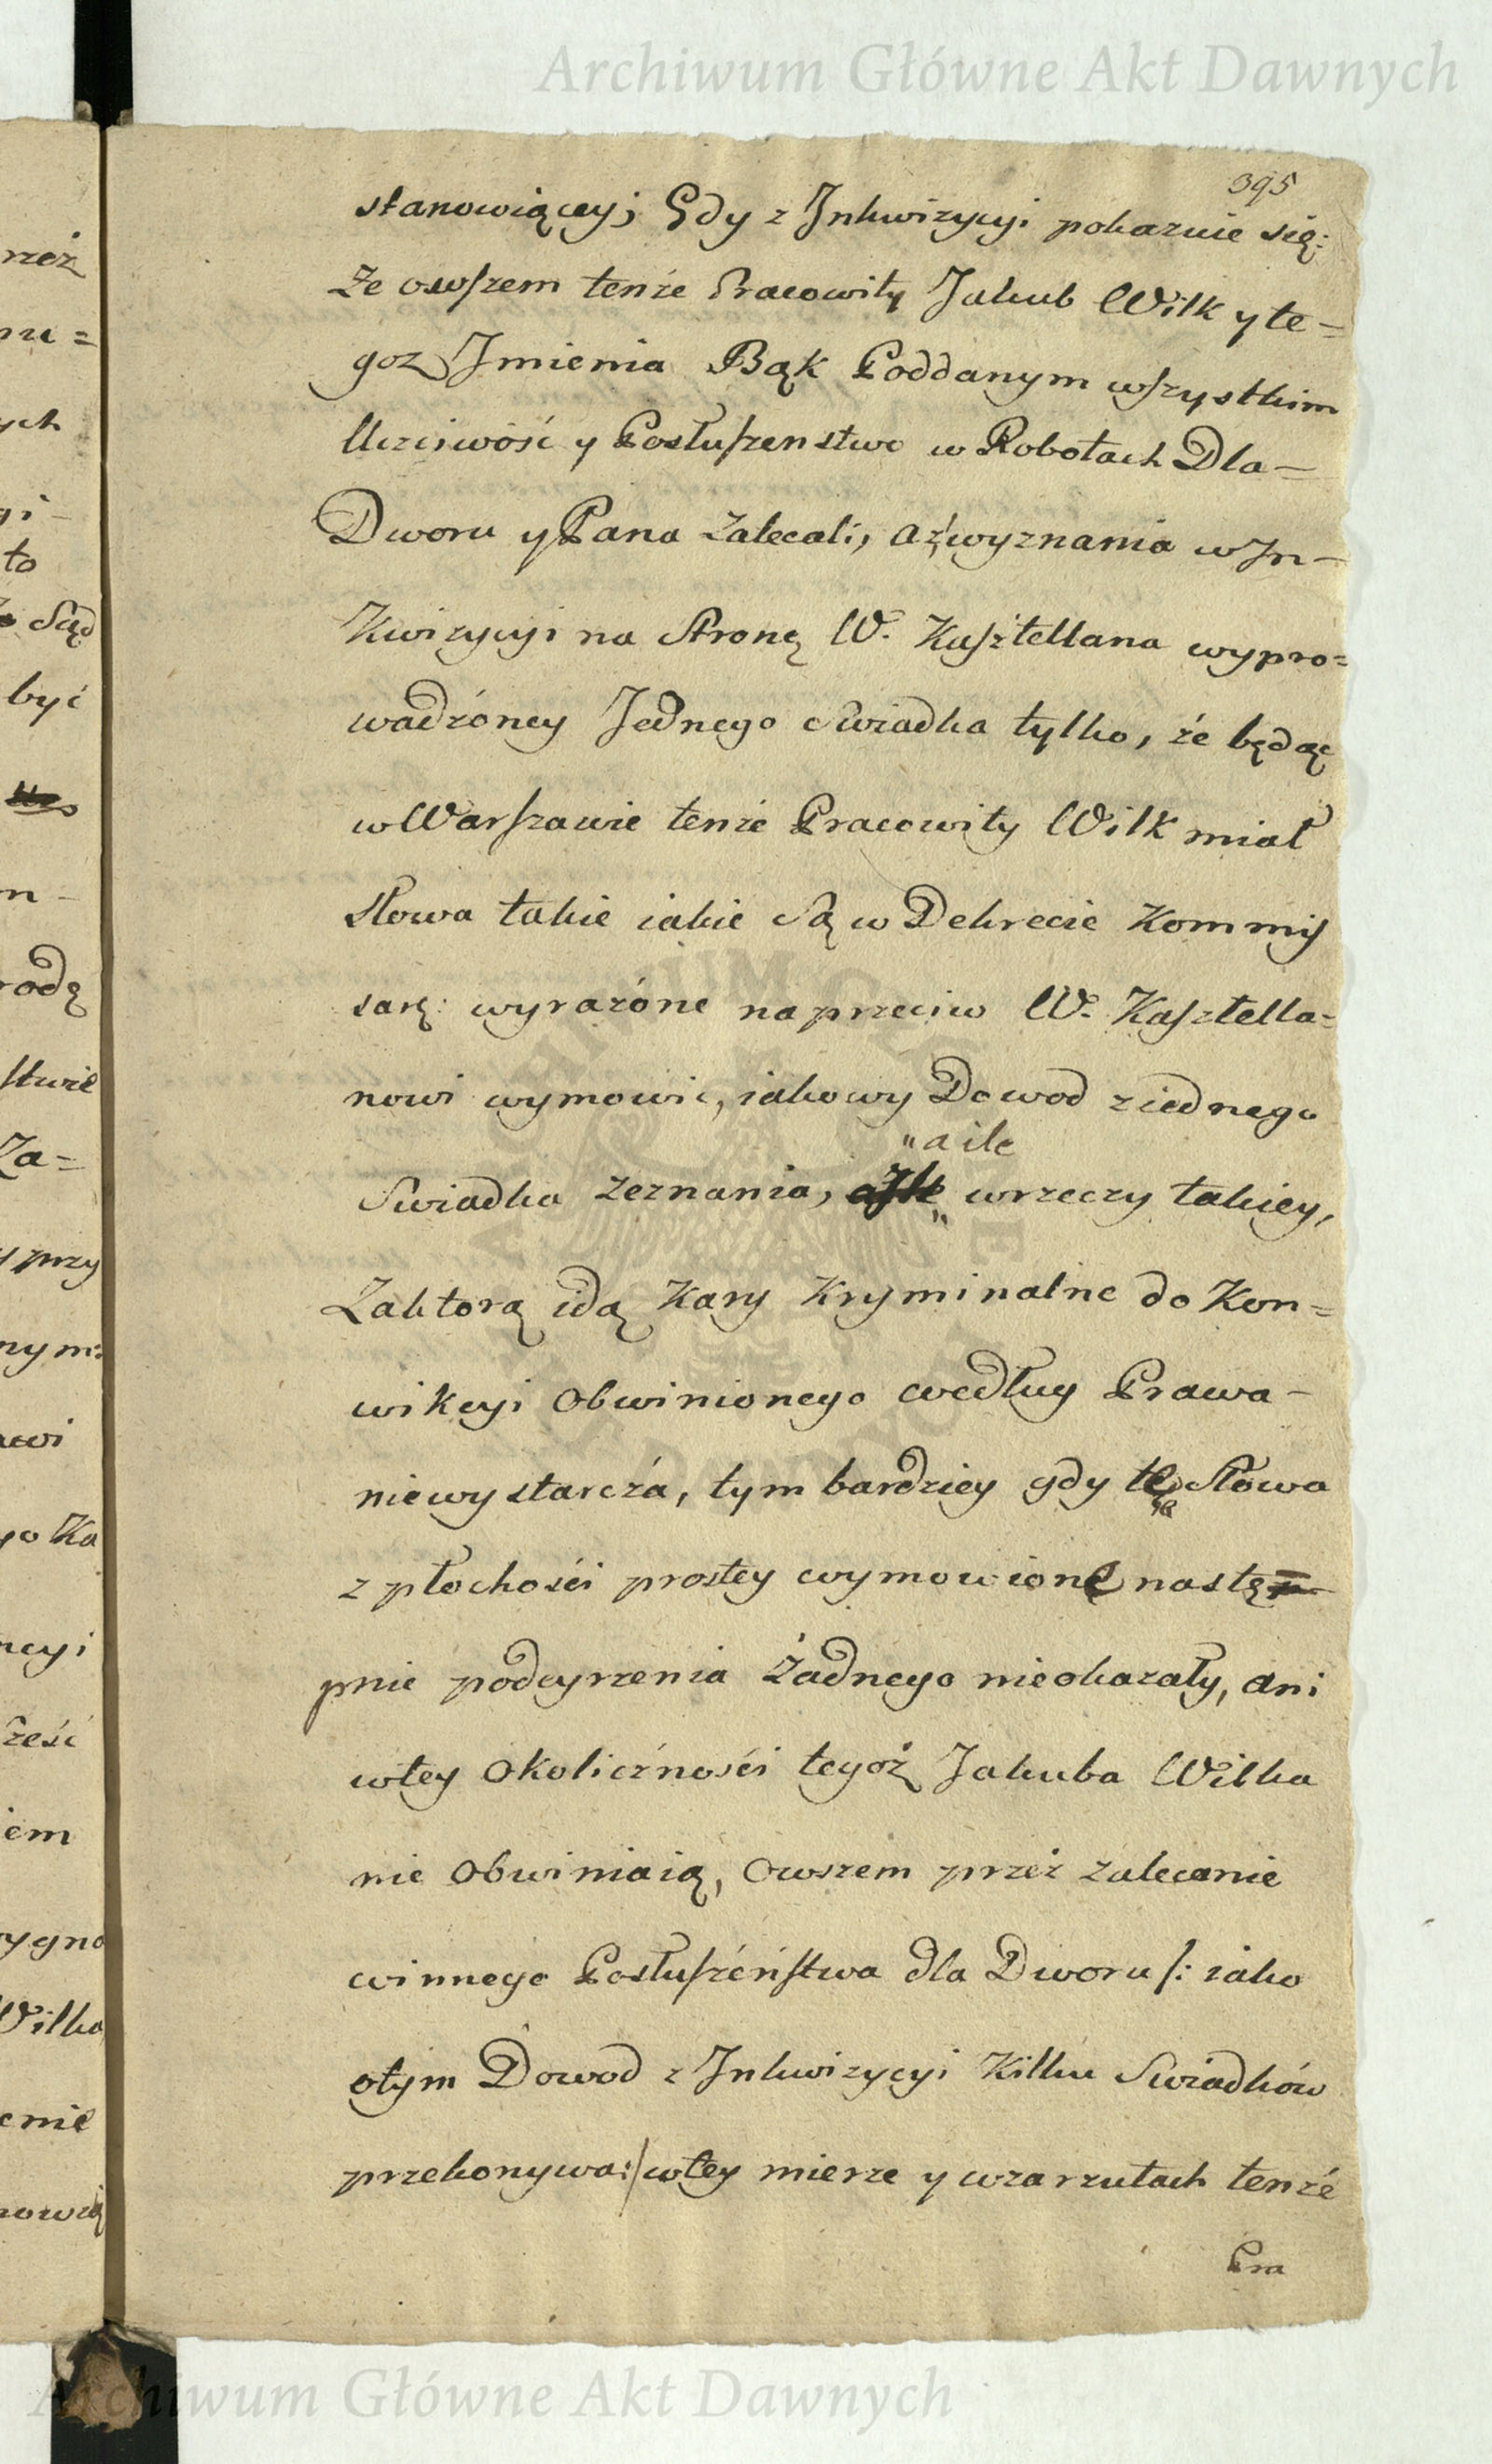 Archiwum Główne Akt Dawnych
395
stanowiącey; Gdy z Inkwizycyi pokazuie się:
Ze owszem tenże Pracowity Jakub Wilk y te-
goz Imienia Bąk Poddanym wszystkim
Uczciwość y Posłuszenstwo w Robotach Dla-
Dworu y Pana zalecali, a z wyznania w In-
kwizycyi na Stronę W. Kasztellana wypro=
wadzóney Jednego Swiadka tylko, że będąc
w Warszawie tenże Pracowity Wilk miał
Słowa takie iakie Są w Dekrecie Kommis
sarz: wyrażóne naprzeciw W. Kasztella=
nowi wymowic, iakowy Dowod z iednego
"a ile
Swiadka Zeznania, w rzeczy takiey,
Zaktorą idą Kary Kryminalne do Kon=
wikcyi Obwinionego według Prawa-
niewystarcza, tym bardziey gdy te Słowa
z płochości prostey wymowione nastę
pnie podeyrzenia żadnego nieokazały, ani
wtey Okoliczności tegoż Jakuba Wilka
nie Obwiniaią, Owszem przez zalecenie
winnego Posłuszéństwa dla Dworu /: iako
otym Dowod z Inkwizycyi Kilku Swiadków
przekonywa:/ wtey mierze y wzarzutach tenże
Pra
rzeż
ych
gi-
to
Sąd
być
m-
rodę
stwie
Za=
y przy
nym:
owi
go Ka
ncyi
rześć
iem
ygno
Wilka
enie
nowią
Archiwum Główne Akt Dawnych